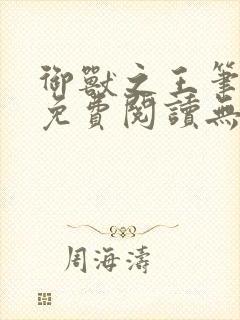 御獸之王筆
免費閱讀無
周海濤